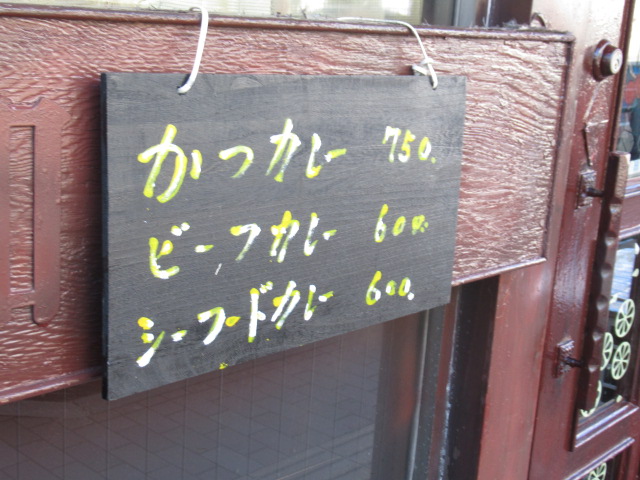 かつカレー 750.
ビーフカレー 600.
シーフードカレー 600.